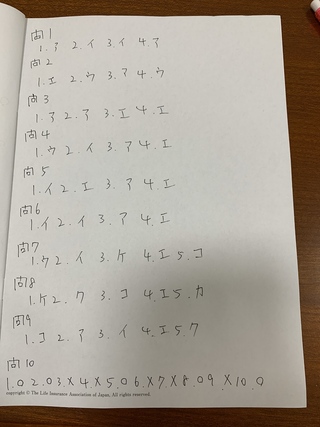 問1
1.ア 2.イ 3.イ 4.ア
問2
1.エ 2.ウ 3.ア 4.ウ
問3
1.ア 2.ア 3.エ 4.エ
問4
1.ウ 2.イ 3.ア 4.エ
問5
1.イ 2.エ 3.ア 4.エ
問6
1.イ 2.イ 3.ア 4.エ
問7
1.ウ 2.イ 3.ケ 4.エ 5.コ
問8
1.ケ 2.ウ 3.コ 4.エ 5.カ
問9
1.コ 2.ア 3.イ 4.エ 5.ク
問10
1.○ 2.○ 3.× 4.× 5.○ 6.× 7.× 8.○ 9.× 10.○
copyright © The Life Insurance Association of Japan. All rights reserved.